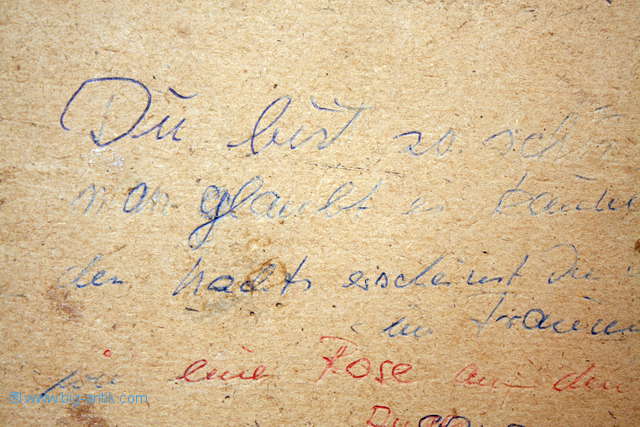 Du bist so schön
man glaubt es kaum
den nachts erscheinst Du
im Traum
wie eine Rose aus dem